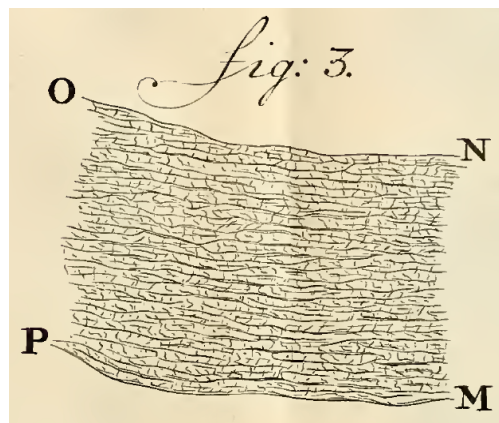 fig: 3.
O
N
P
M